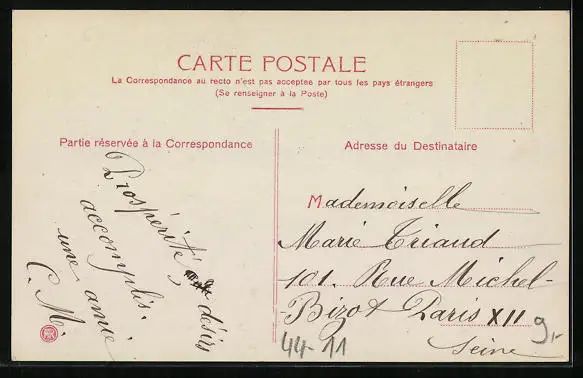 CARTE POSTALE
La Correspondance au recto n'est pas acceptée par tous les pays étrangers
(Se renseigner à la Poste)
Partie réservée à la Correspondance
Prospérité, désirs
accomplis.
une amie
C. M.
Adresse du Destinataire
Mademoiselle
Marie Triaud
101. Rue Michel-
Bizot Paris XII
Seine
44-11
9,-